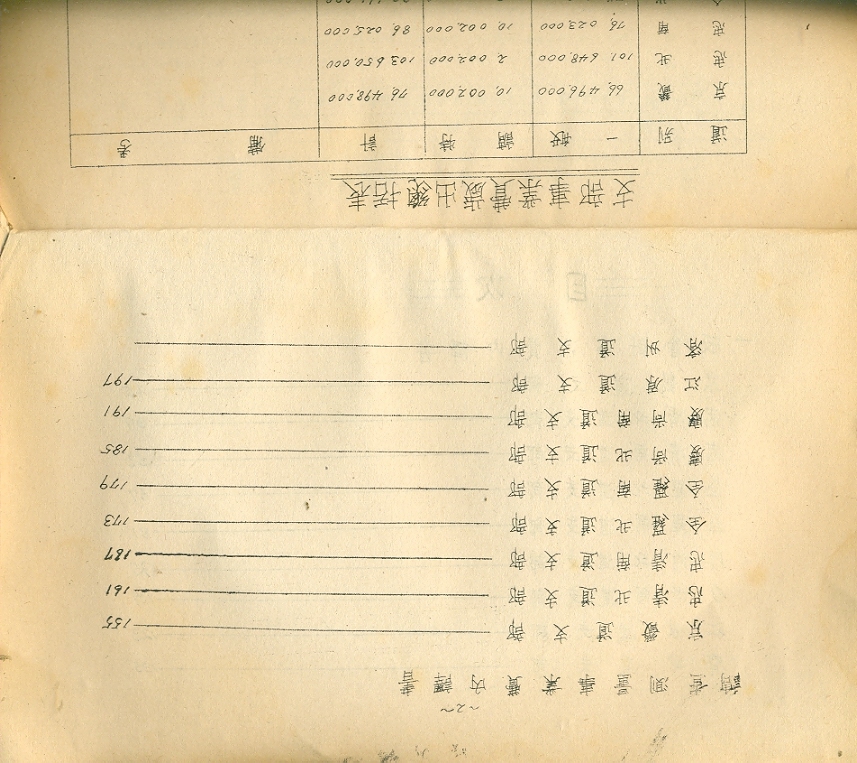 ~2~
調査測量事業費内譯書
京畿道支部 155
忠清北道支部 161
忠清南道支部 167
全羅北道支部 173
全羅南道支部 179
慶尚北道支部 185
慶尚南道支部 191
江原道支部 197
済州道支部
支部事業費歲出總括表
道別 一般 調特 計 備考
京畿 66,496,000 10,002,000 76,498,000
忠北 101,648,000 2,002,000 103,650,000
忠南 76,023,000 10,002,000 86,025,000